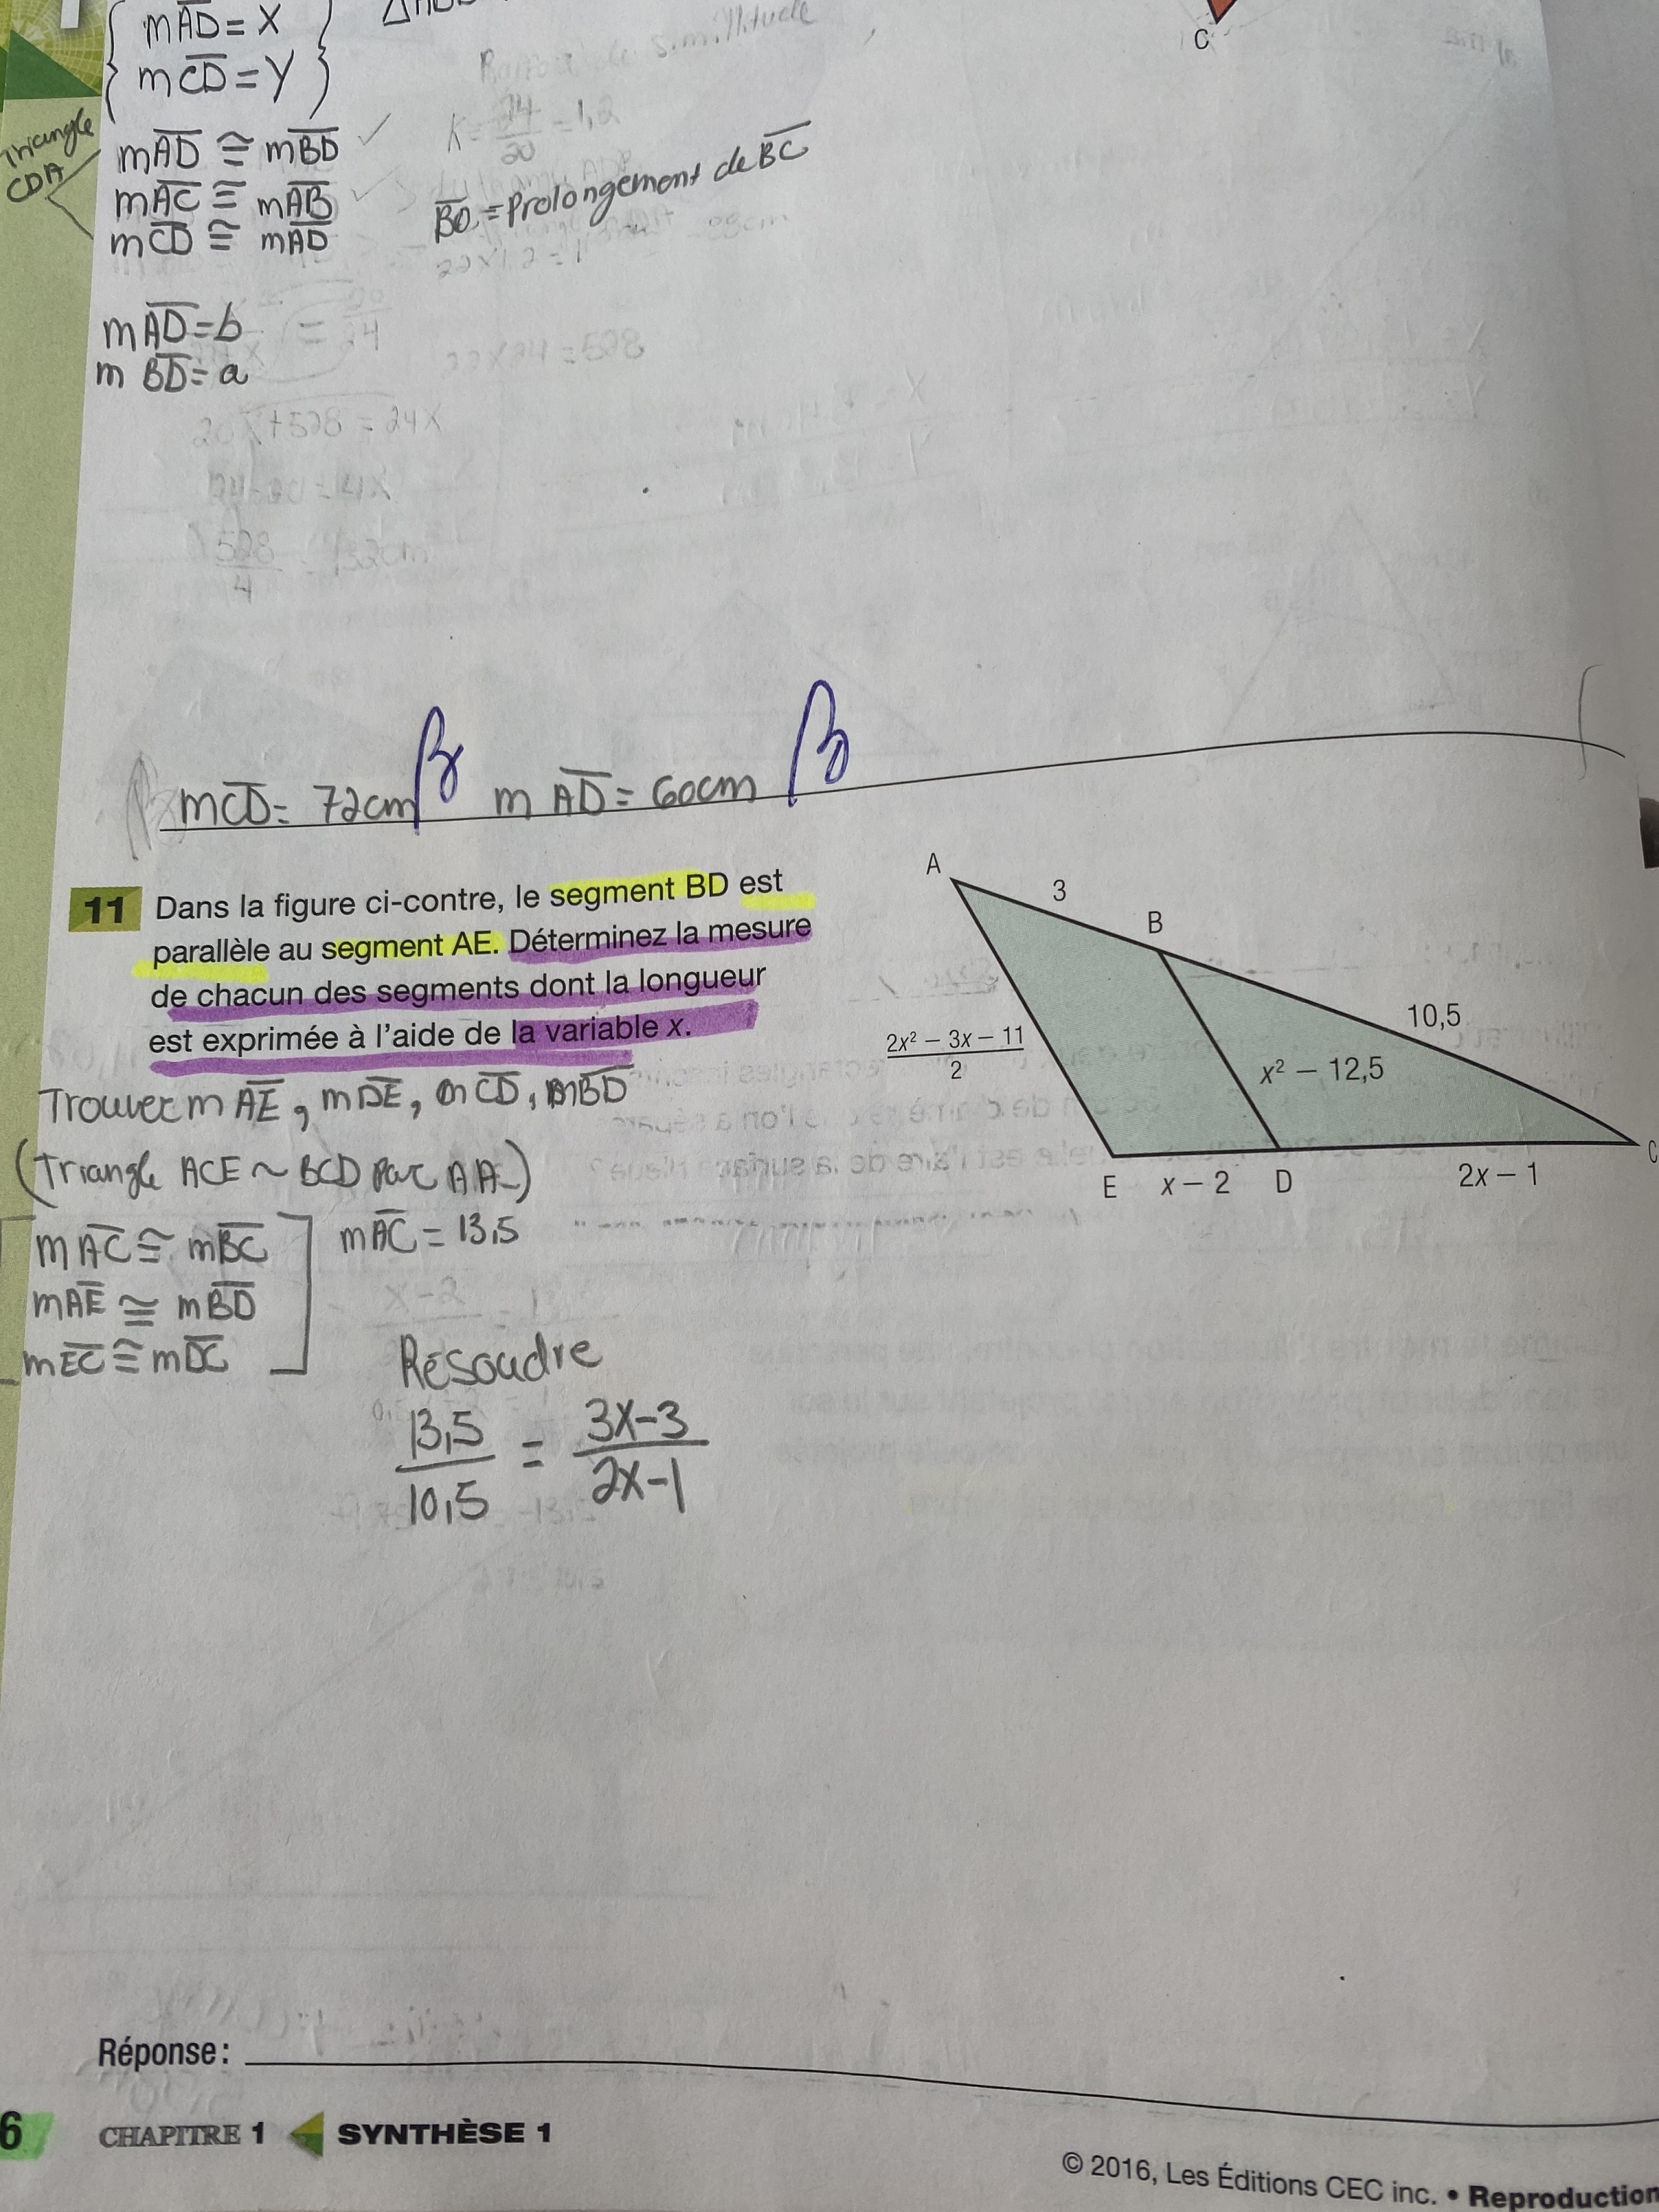 mAD = X
mCD = Y
Triangle
CDA
mAD ≅ mBD ✓
mAC ≅ mAB
mCD ≅ mAD
K = 24/20 = 1,2
BD = Prolongement de BC
mAD = b
m BD = a
22x24 = 528
20x+528 = 24x
528/4
C
mCD = 72cm m AD = 60cm
11 Dans la figure ci-contre, le segment BD est
parallèle au segment AE. Déterminez la mesure
de chacun des segments dont la longueur
est exprimée à l’aide de la variable x.
A
3
B
10,5
2x² – 3x – 11
2
x² – 12,5
E x – 2 D 2x – 1 C
Trouver m AE, mDE, mCD, mBD
(Triangle ACE ~ BCD par AA)
mAC ≅ mBC mAC = 13,5
mAE ≅ mBD
mEC ≅ mDC
Résoudre
13,5/10,5 = 3x-3/2x-1
Réponse :
6 CHAPITRE 1 SYNTHÈSE 1
© 2016, Les Éditions CEC inc. • Reproduction